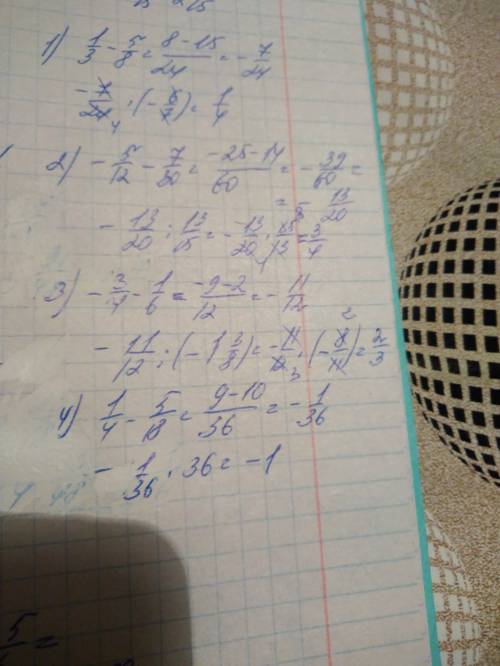 1) 1/3 - 5/8 = (8-15)/24 = - 7/24
- 7/24 4 · (- 6/7) = 1/4
2) - 5/12 - 7/30 = (-25-14)/60 = - 39/60 =
= - 13/20
- 13/20 : 13/15 = - 13/20 · 15/13 = 3/4
3) - 3/4 - 1/6 = (-9-2)/12 = - 11/12
- 11/12 : (- 1 3/8) = - 11/12 3 · (- 8/11) 2 = 2/3
4) 1/4 - 5/18 = (9-10)/36 = - 1/36
- 1/36 · 36 = -1
5
=